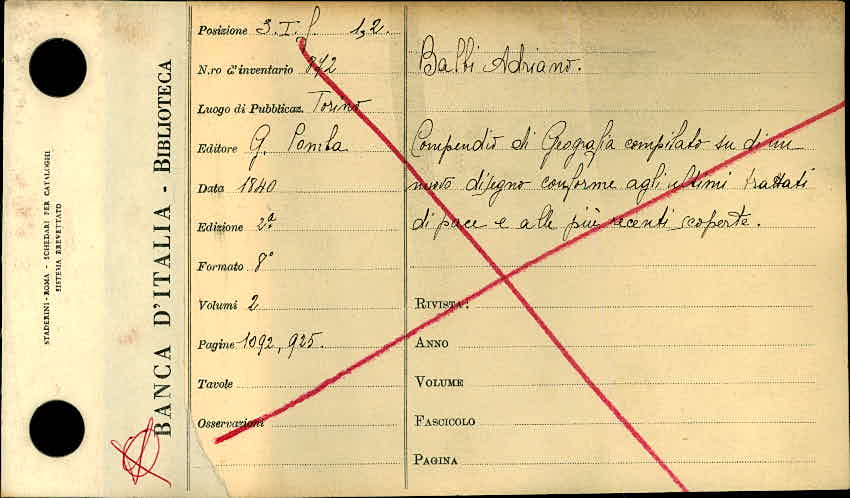 STADERINI-ROMA - SCHEDARI PER CATALOGHI
SISTEMA BREVETTATO
BANCA D'ITALIA - BIBLIOTECA
Posizione 3. I. f. 1,2.
N.ro d'inventario 872
Luogo di Pubblicaz. Torino
Editore G. Pomba
Data 1840
Edizione 2ª
Formato 8°
Volumi 2
Pagine 1092, 925.
Tavole
Osservazioni
Balbi Adriano.
Compendio di Geografia compilato su di un
nuovo disegno conforme agli ultimi trattati
di pace e alle più recenti scoperte.
RIVISTA:
ANNO
VOLUME
FASCICOLO
PAGINA